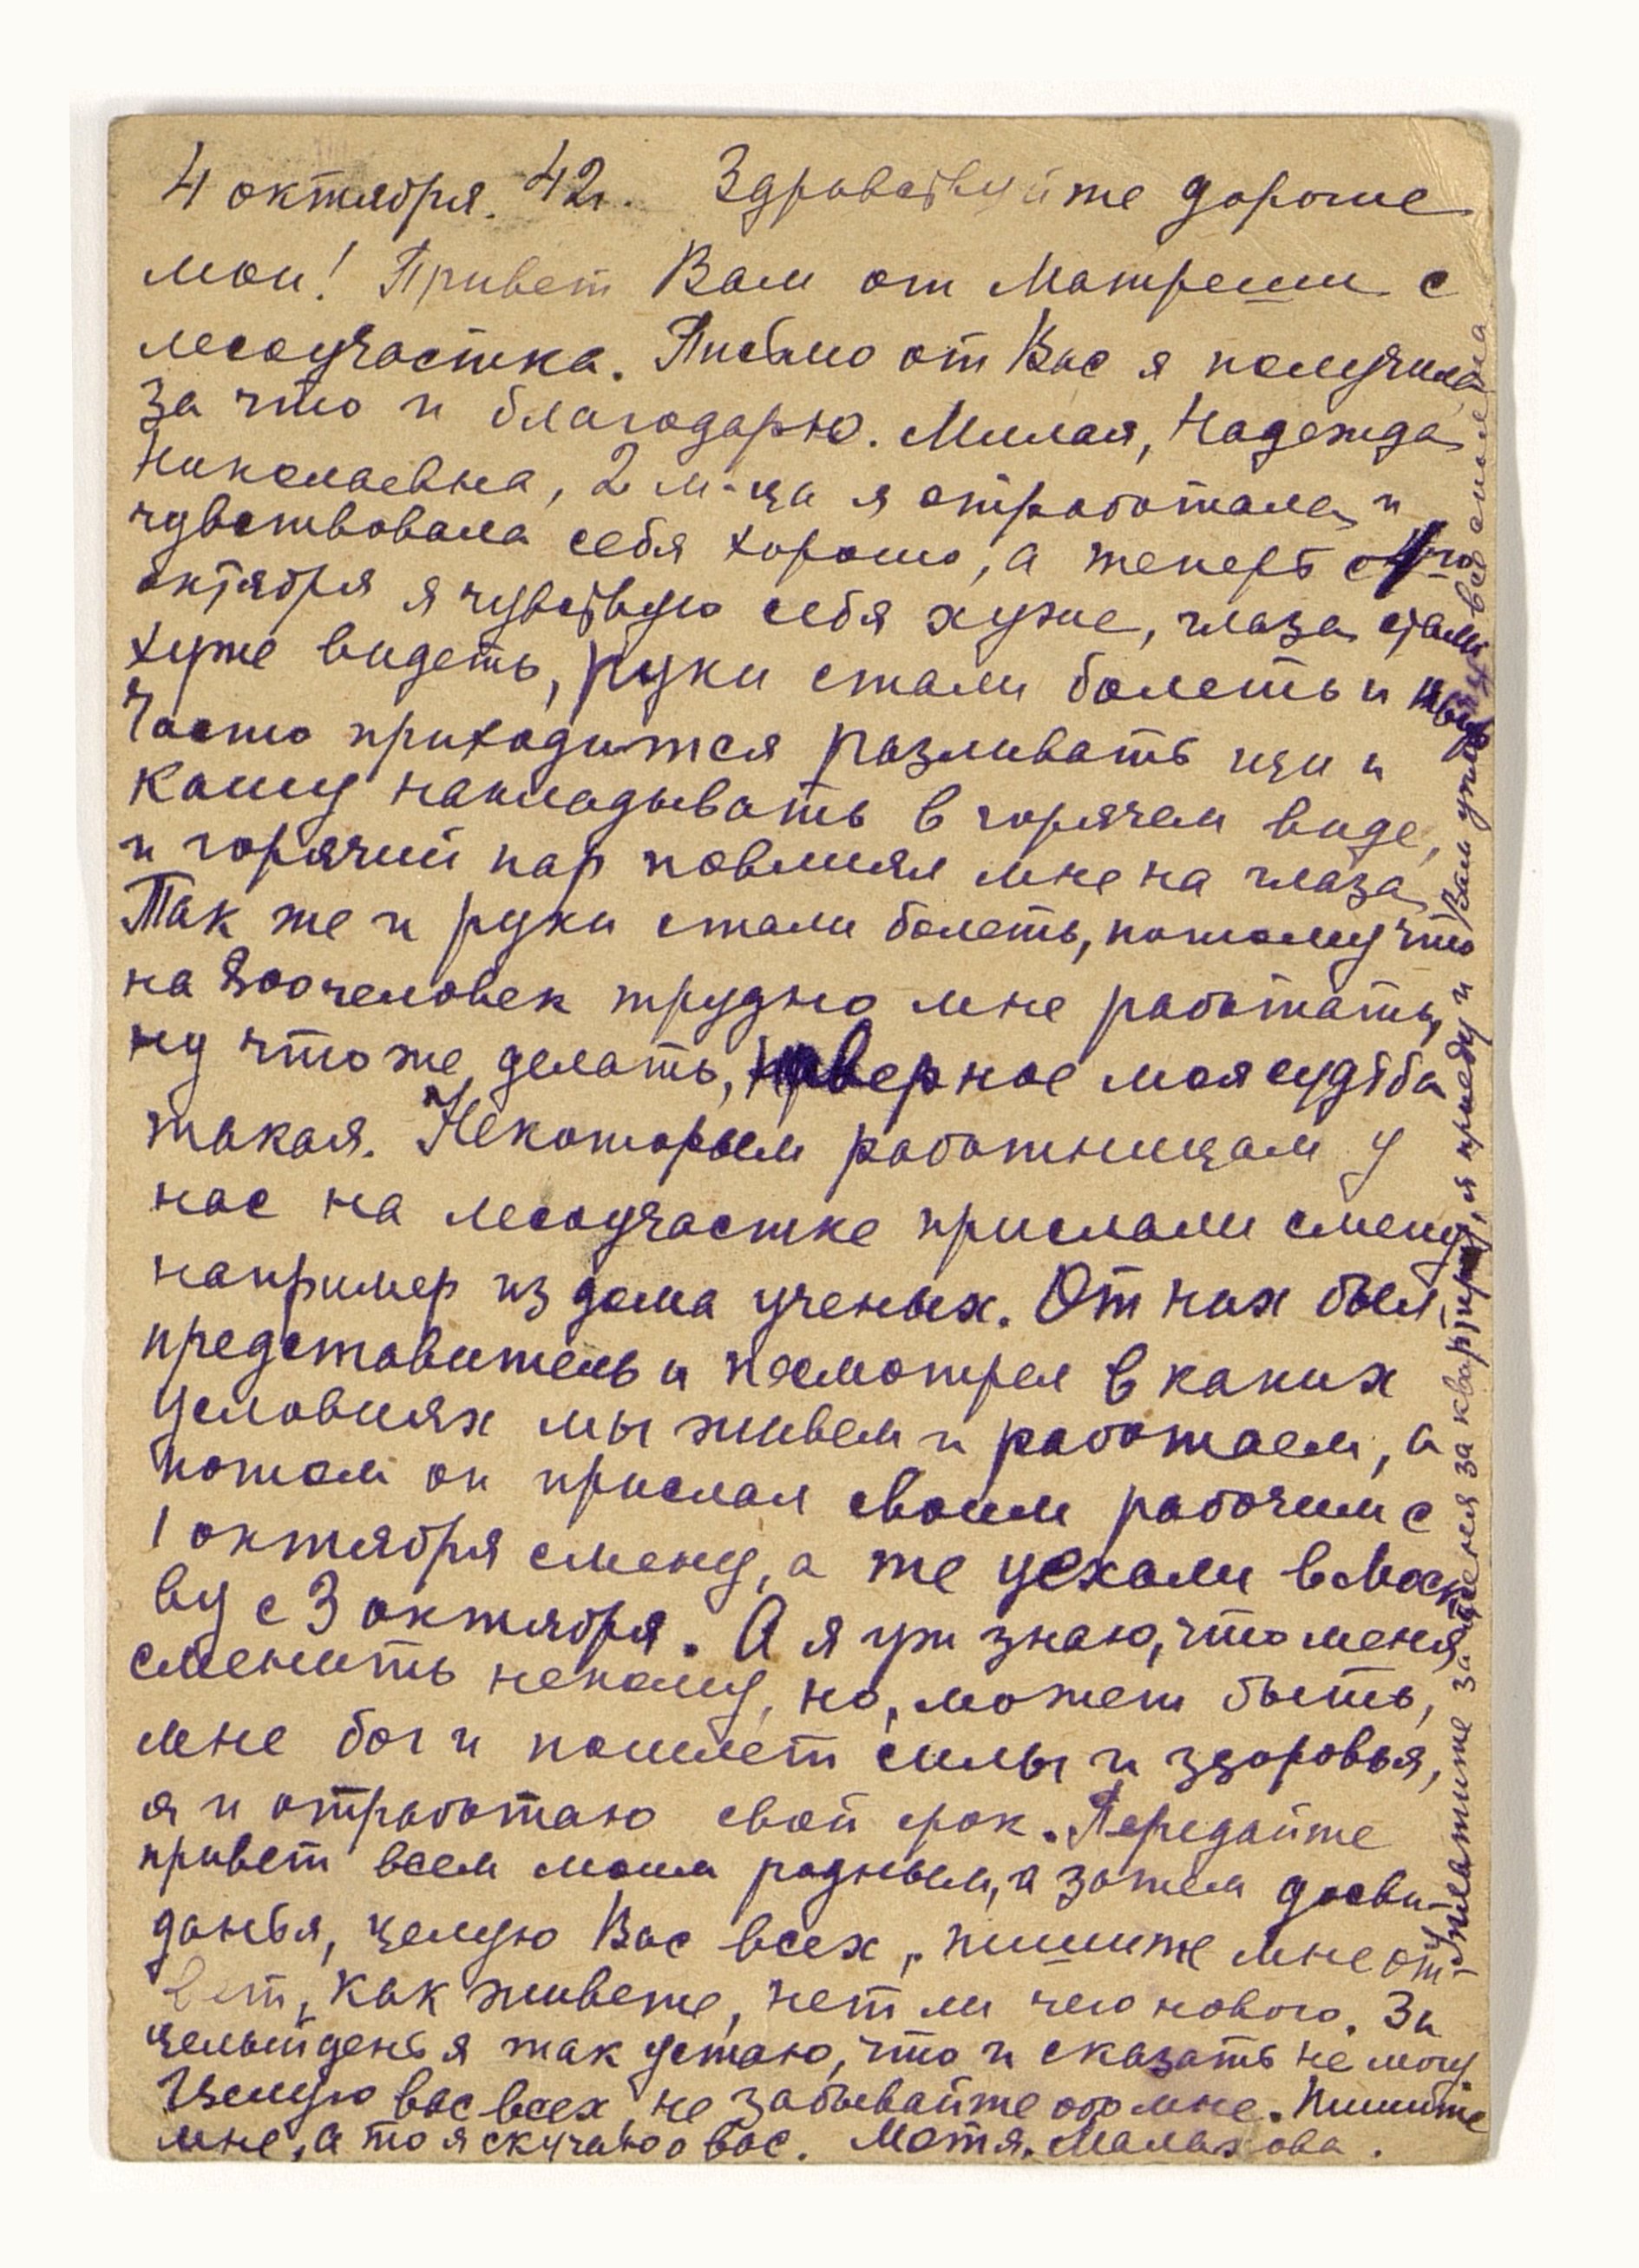 4 октября. 42г. Здравствуйте дорогие
мои! Привет Вам от Матреши с
лесоучастка. Письмо от Вас я получила
за что и благодарю. Милая, Надежда
Николаевна, 2 м-ца я отработала и
чувствовала себя хорошо, а теперь с
октября я чувствую себя хуже, глаза стали
хуже видеть, руки стали болеть и
часто приходится разливать щи и
кашу накладывать в горячем виде,
и горячий пар повлиял мне на глаза
Так же и руки стали болеть, потому что
на 300 человек трудно мне работать,
ну что же делать, наверное моя судьба
такая. Некоторым работницам у
нас на лесоучастке прислали смену
например из дома ученых. От них был
представитель и посмотрел в каких
условиях мы живем и работаем, а
потом он прислал своим рабочим с
1 октября смену, а те уехали в Моск
ву с 3 октября. А я уж знаю, что меня
сменить некому, но, может быть,
мне бог и пошлет силы и здоровья,
я и отработаю свой срок. Передайте
привет всем моим родным, а затем досви-
данья, целую Вас всех, пишите мне от-
вет, как живете, нет ли чего нового. За
целый день я так устаю, что и сказать не могу
Целую вас всех, не забывайте обо мне. Пишите
мне, а то я скучаю о вас. Мотя. Малахова.
платите за меня за квартиру, я приеду и Вам уплачу все сполна